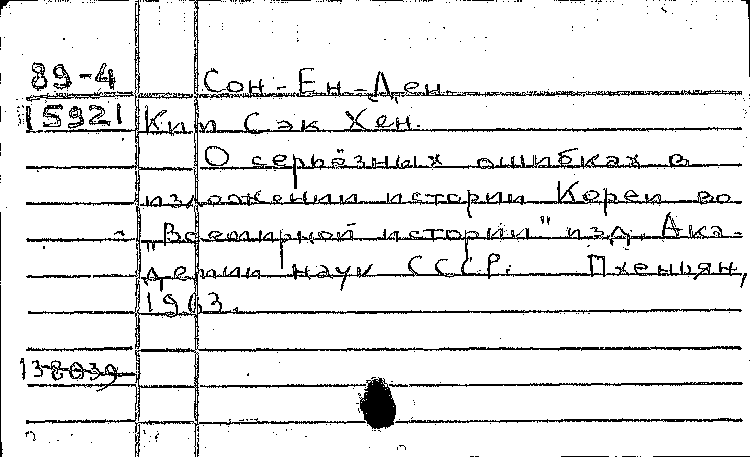 89-4 Сон-Ен-Ден.
15921 Ким Сэк Хен.
О серьёзных ошибках в
изложении истории Кореи во
„Всемирной истории" изд. Ака-
демии наук СССР. Пхеньян,
1963.
138039